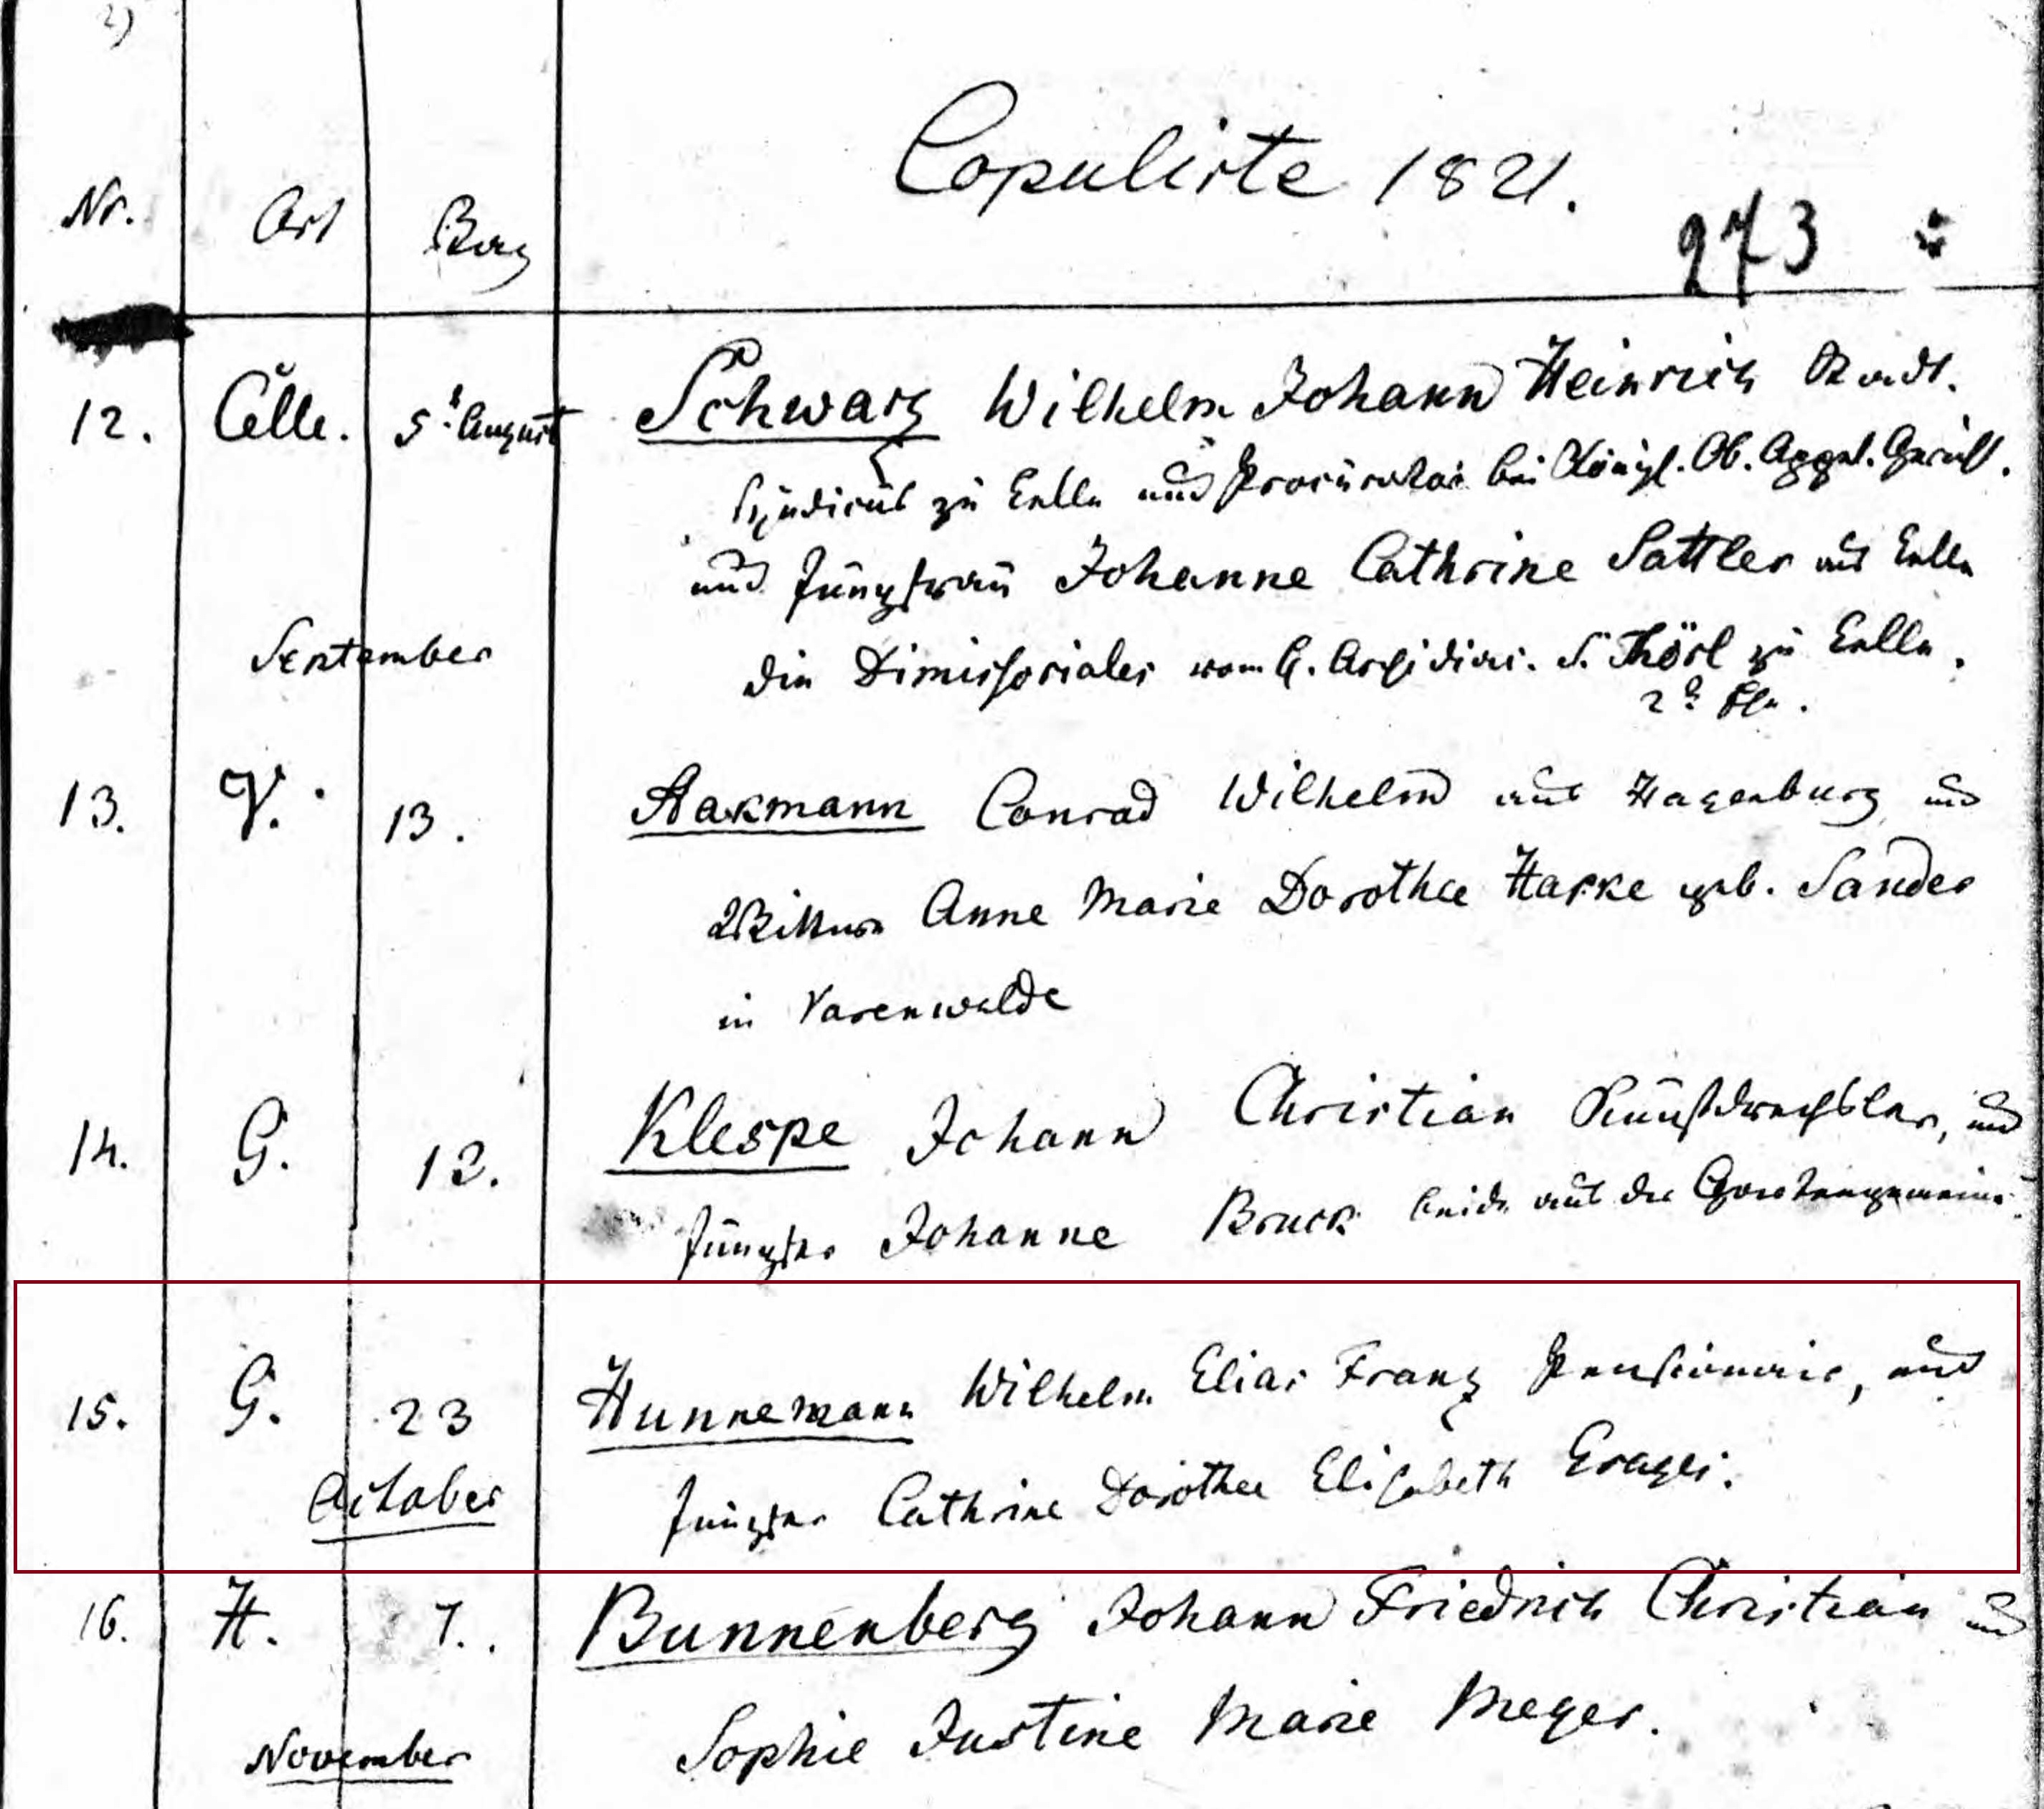 2)
Copulirte 1821.
Nr. Ort Tag
273
12. Celle. 5t August Schwarz Wilhelm Johann Heinrich Stadt.
Syndicus zu Celle und Procurator bei Königl. Ob. Appel. Gericht.
und Jungfrau Johanne Cathrine Sattler aus Celle
September
die Dimissoriales vom H. S. Thörl zu Celle.
13. V. 13. Aakmann Conrad Wilhelm aus Hagenburg und
Wittwe Anne Marie Dorothee Harke geb. Sander
in Varenwalde
14. G. 12. Klespe Johann Christian Kunstdrechsler, und
Jungfer Johanne Bruck beide aus der Gartengemeine.
15. G. 23 Hunnemann Wilhelm Elias Franz Pensionair, und
October
Jungfer Cathrine Dorothee Elisabeth Erager.
16. H. 7. Bunnenberg Johann Friedrich Christian und
Sophie Justine Marie Meyer.
November